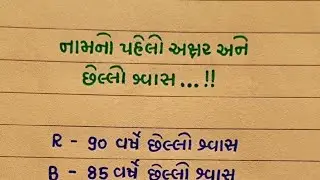 નામનો પહેલો અક્ષર અને
છેલ્લો શ્વાસ...!!
R - 90 વર્ષે છેલ્લો શ્વાસ
B - 85 વર્ષે છેલ્લો શ્વાસ